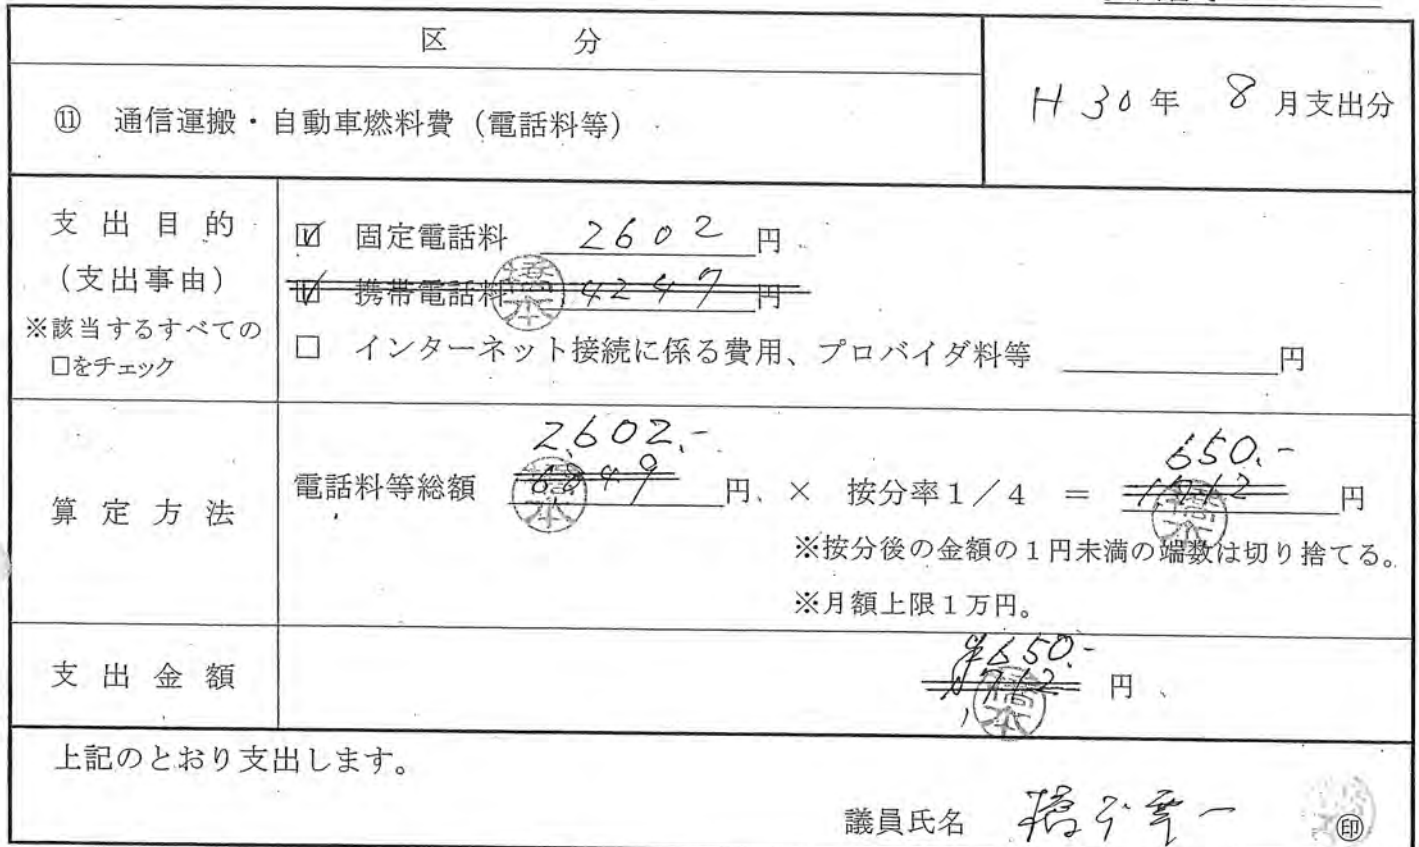 区　分
⑪ 通信運搬・自動車燃料費（電話料等）
H30年 8月支出分
支出目的
（支出事由）
※該当するすべての
□をチェック
☑ 固定電話料 2602 円
☑ 携帯電話料 4247 円
□ インターネット接続に係る費用、プロバイダ料等 円
算定方法
2,602.-
650.-
電話料等総額 6849 円 × 按分率1/4 = 1712 円
※按分後の金額の1円未満の端数は切り捨てる。
※月額上限1万円。
支出金額
¥650.-
1712 円
上記のとおり支出します。
議員氏名 ㊞